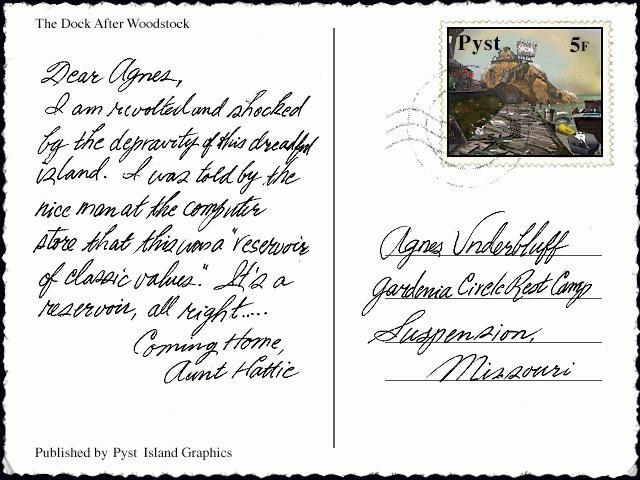 The Dock After Woodstock
Dear Agnes,
I am revolted and shocked
by the depravity of this dreadful
island. I was told by the
nice man at the computer
store that this was a "reservoir
of classic values." It's a
reservoir, all right.....
Coming Home,
Aunt Hattie
Published by Pyst Island Graphics
Pyst 5F
Agnes Underbluff
Gardenia Circle Rest Camp
Suspension,
Missouri